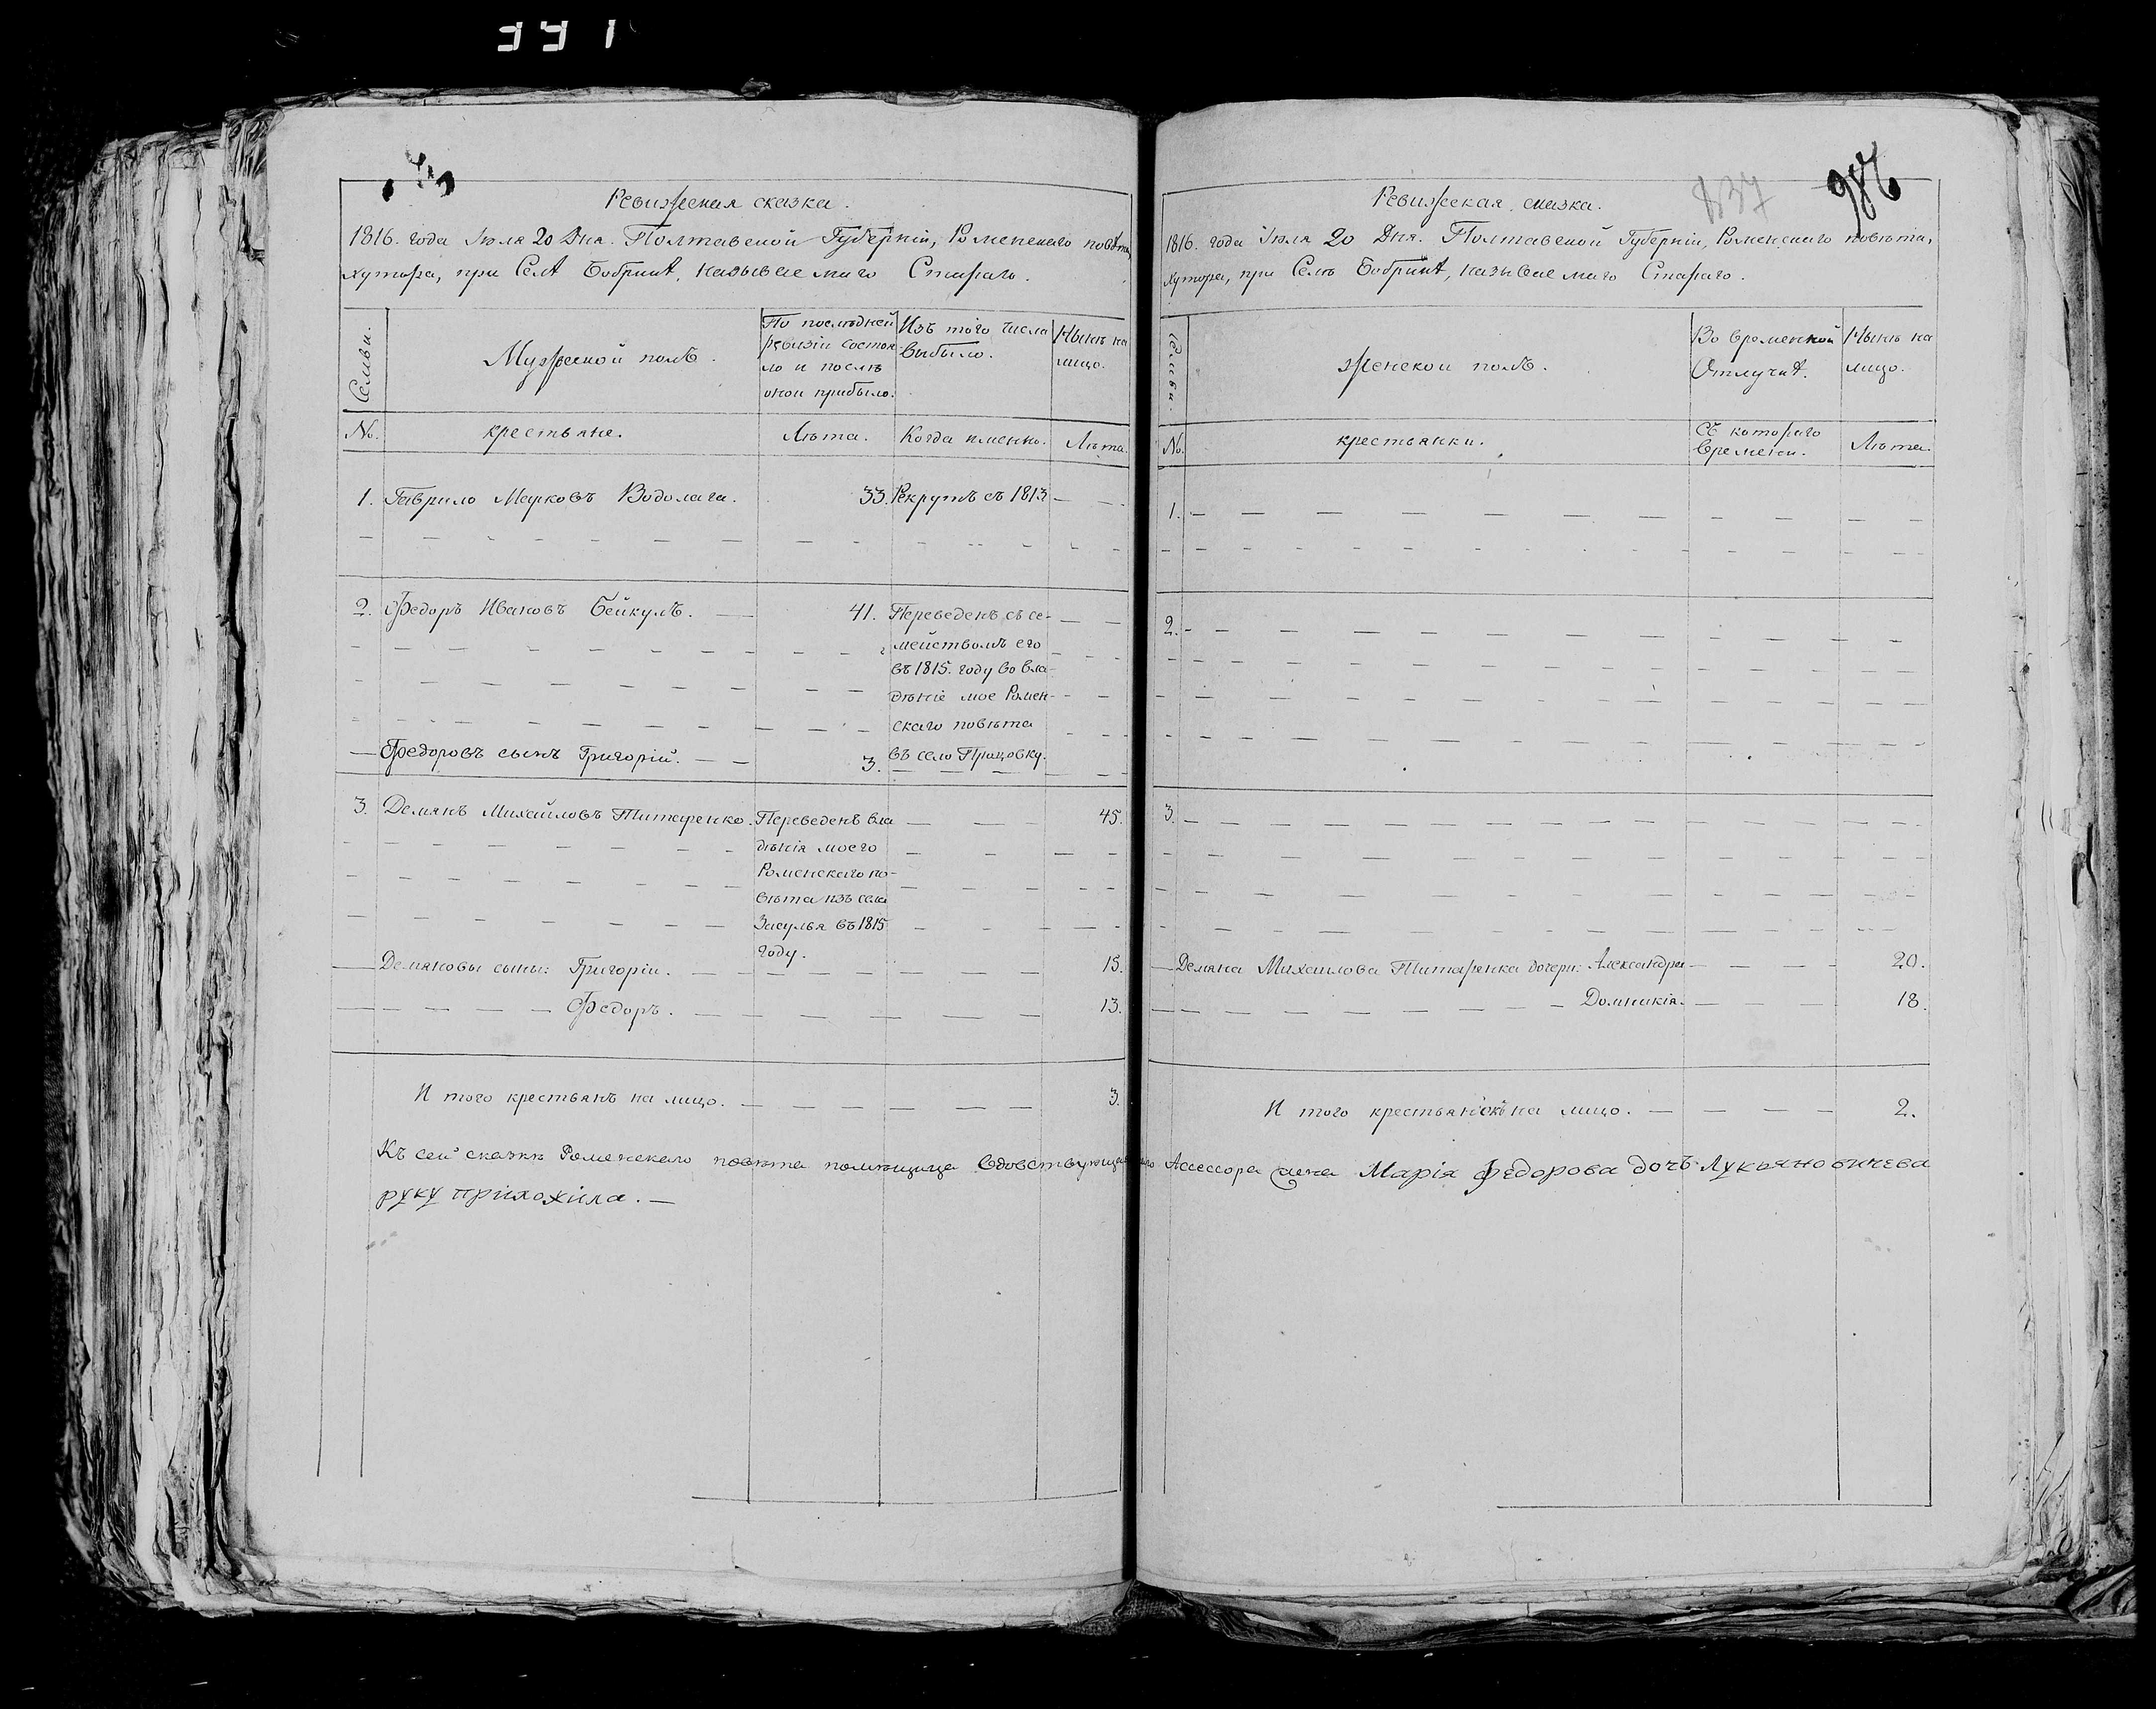 331
Ревижская сказка.
1816. года Июля 20 Дня. Полтавской Губерніи, Роменскаго повѣта,
хутора, при Селѣ Бобрикѣ, называемаго Стараго.
Семьи.
Мужеской полъ.
По послѣдней
ревизіи состоя-
ло и послѣ
оной прибыло.
Изъ того числа
выбыло.
Нынѣ на
лицо.
No. крестьяне. Лѣта. Когда именно. Лѣта.
1. Гаврило Марковъ Водолага. 33. Рекрутъ съ 1813
2. Федоръ Ивановъ Бейкулъ. 41. Переведенъ съ се-
мействомъ его
въ 1815. году во вла-
дѣніе мое Ромен-
скаго повѣта
Федоровъ сынъ Григорій. 3. въ село
3. Демянъ Михайловъ Титаренко. Переведенъ вла 45.
дѣнія моего
Роменскаго по-
вѣта изъ села
Засулья въ 1815
году.
Демяновы сыны: Григорій. 15.
Федоръ. 13.
И того крестьянъ на лицо. 3.
837 986
Ревижская сказка.
1816. года Июля 20 Дня. Полтавской Губерніи, Роменскаго повѣта,
хутора, при Селѣ Бобрикѣ, называемаго Стараго.
Семьи.
Женской полъ.
Во временной
Отлучкѣ.
Нынѣ на
лицо.
No. крестьянки. Съ котораго
времени. Лѣта.
1.
2.
3.
Демяна Михайлова Титаренка дочери: Александра 20.
Домникія. 18.
И того крестьянокъ на лицо. 2.
Къ сей сказкѣ Роменскаго повѣта помѣщица вдовствующая Асессорша Марія Федорова дочь Лукьяновичева
руку приложила.